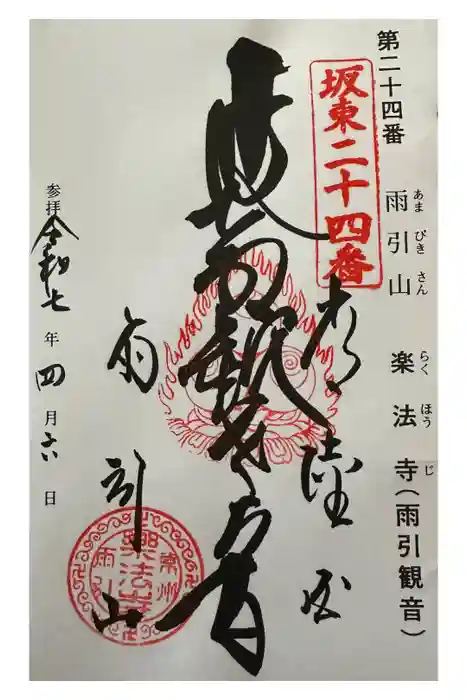 第二十四番 雨引山 楽法寺(雨引観音)
あま びき さん
らく ほう じ
坂東二十四番
常陸国
延命観世音
雨引山
常州
樂法寺
雨引
参拝 令和七年四月六日